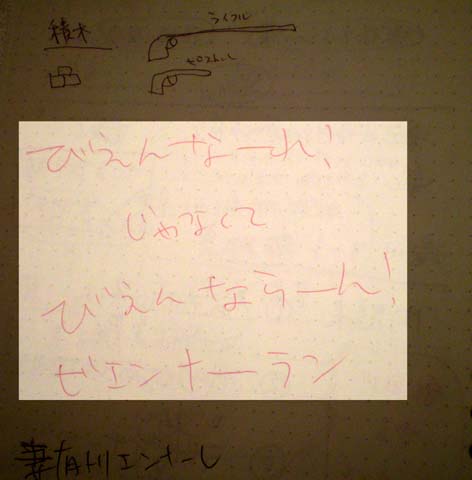 積木
ライフル
ピストル
びえんなーれ!
じゃなくて
びえんならーん!
ビエンナーラン
妻有トリエンナーレ